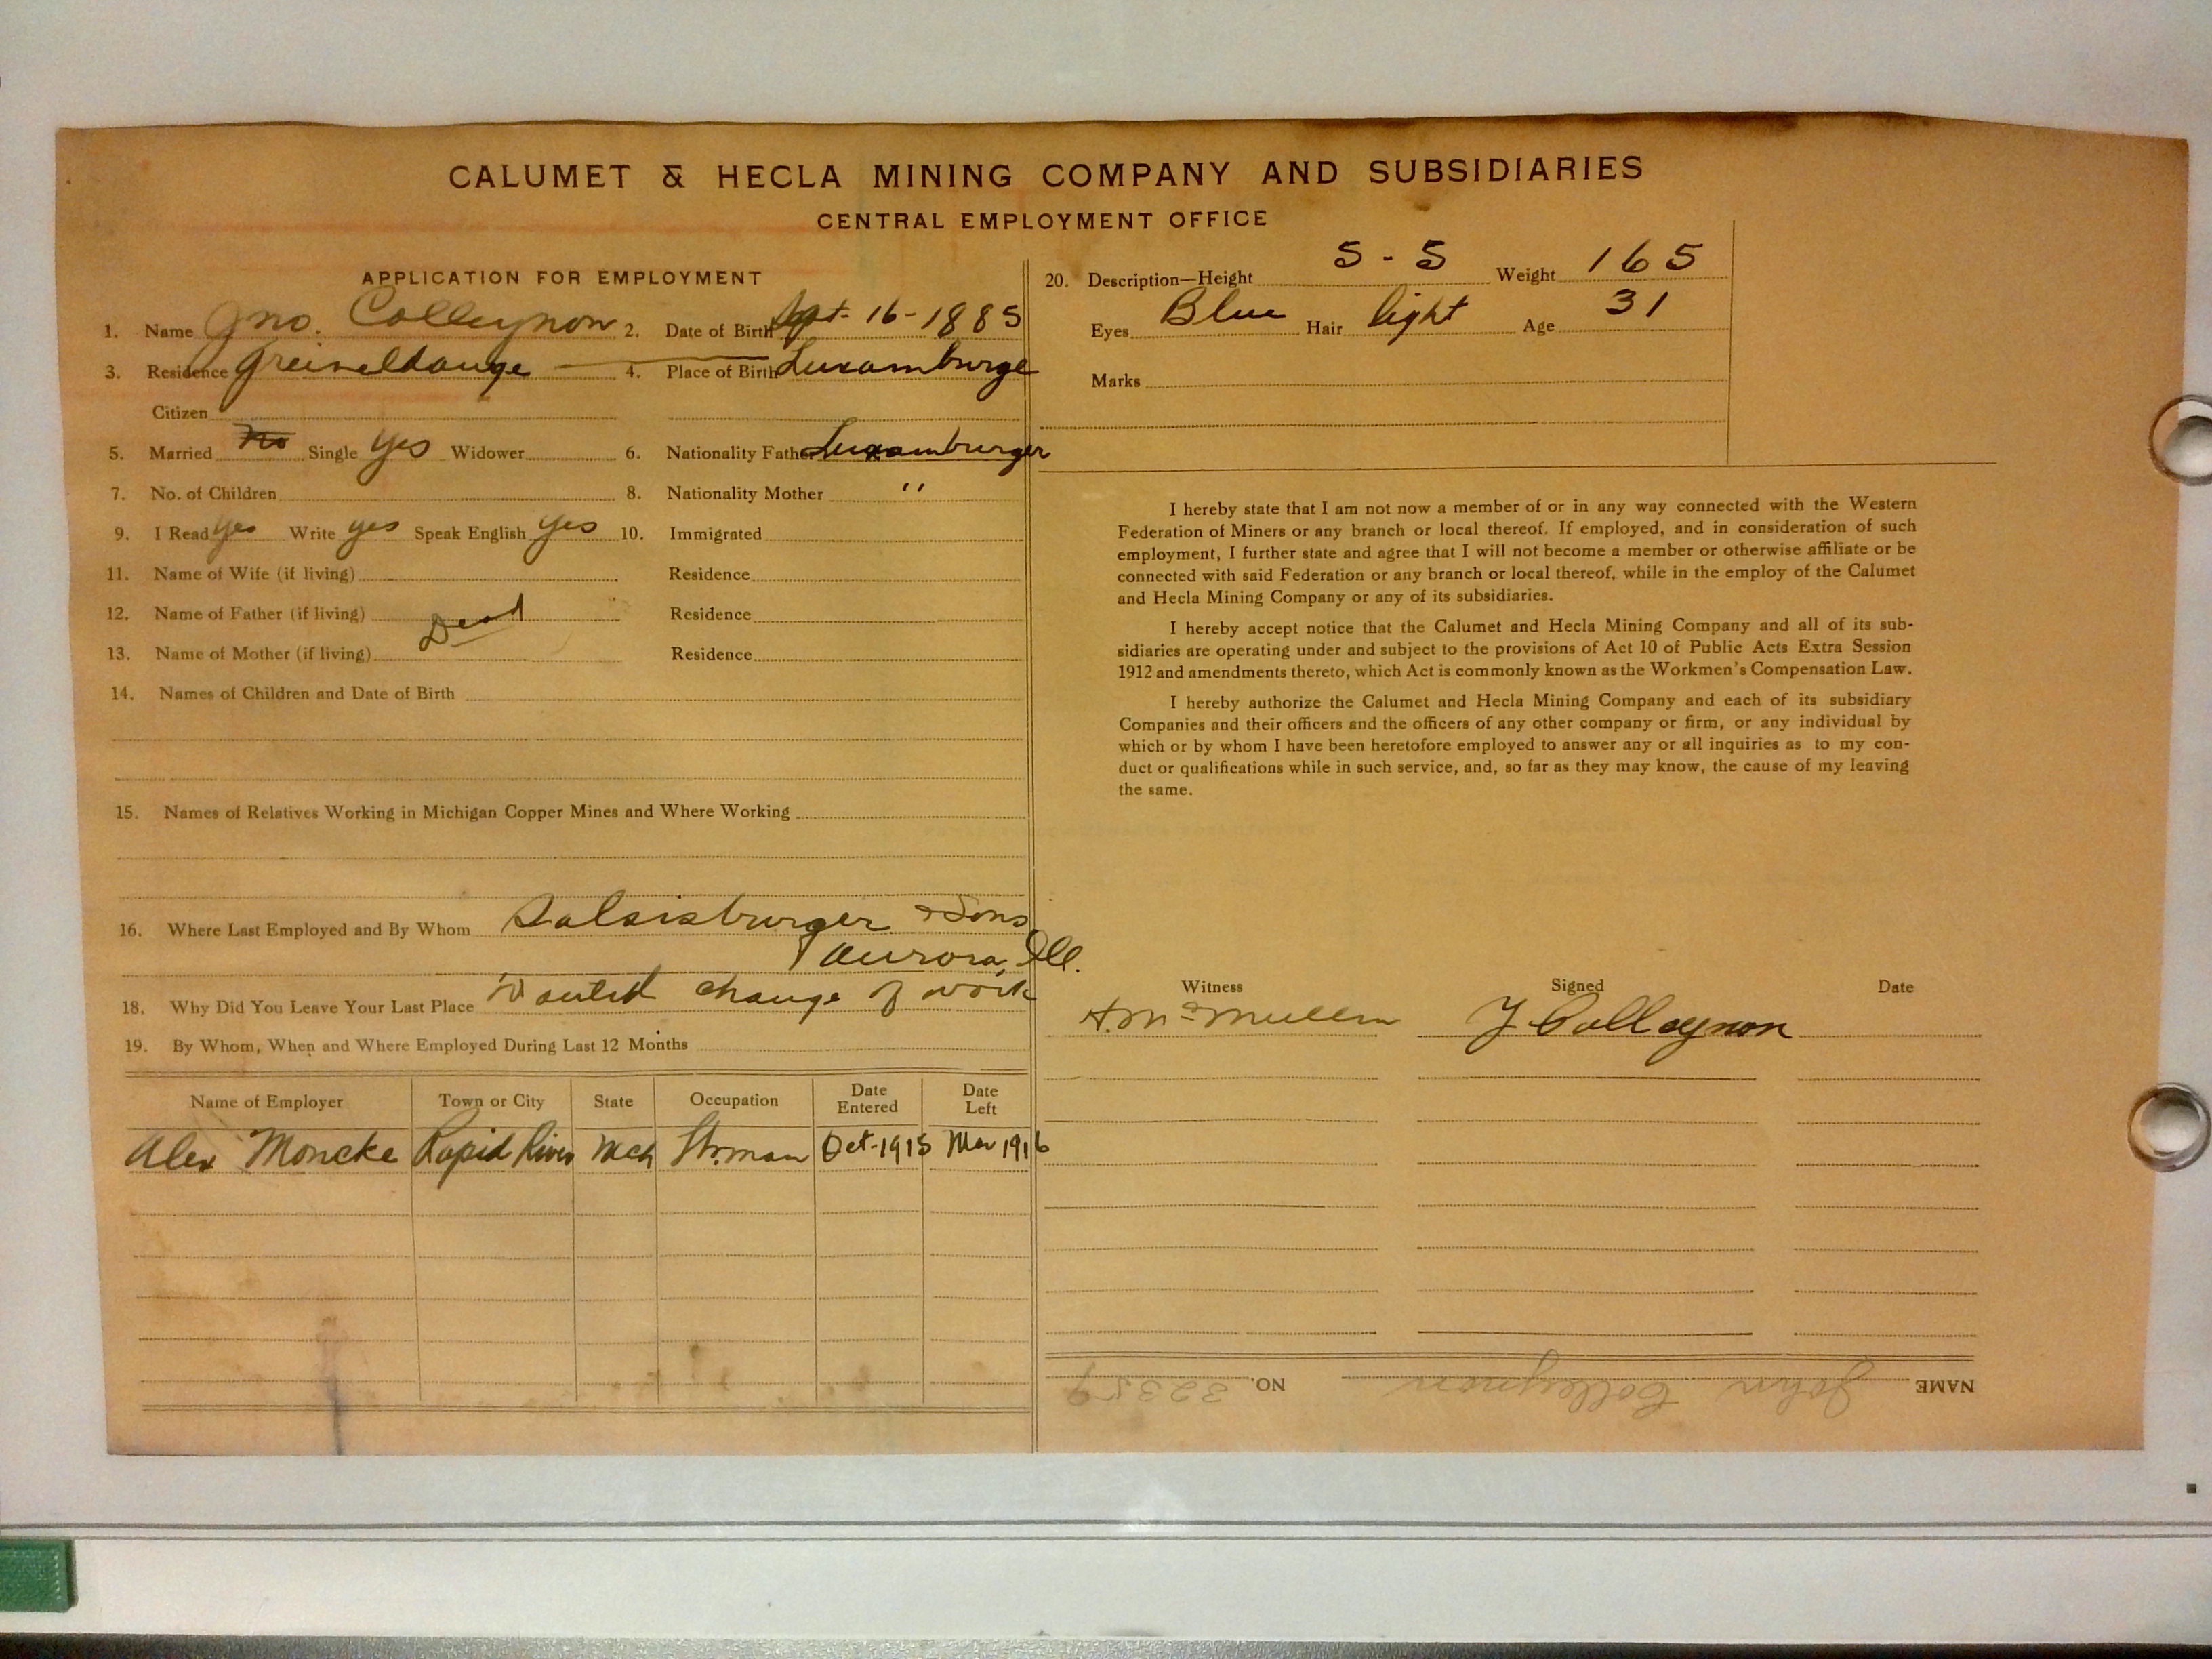 CALUMET & HECLA MINING COMPANY AND SUBSIDIARIES
CENTRAL EMPLOYMENT OFFICE
APPLICATION FOR EMPLOYMENT
1. Name Jno. Colleynon 2. Date of Birth Sept. 16-1885
3. Residence 4. Place of Birth Luxamburge
Citizen
5. Married No Single yes Widower
6. Nationality Father Luxamburger
7. No. of Children 8. Nationality Mother "
9. I Read yes Write yes Speak English yes 10. Immigrated
11. Name of Wife (if living) Residence
12. Name of Father (if living) Dead Residence
13. Name of Mother (if living) Residence
14. Names of Children and Date of Birth
15. Names of Relatives Working in Michigan Copper Mines and Where Working
16. Where Last Employed and By Whom Salsisburger & Sons
Aurora, Ill.
18. Why Did You Leave Your Last Place Wanted change of work
19. By Whom, When and Where Employed During Last 12 Months
Name of Employer Town or City State Occupation Date Entered Date Left
Alex Moncke Rapid River Mch Oct-1915 Mar 1916
20. Description—Height 5-5 Weight 165
Eyes Blue Hair light Age 31
Marks
I hereby state that I am not now a member of or in any way connected with the Western
Federation of Miners or any branch or local thereof. If employed, and in consideration of such
employment, I further state and agree that I will not become a member or otherwise affiliate or be
connected with said Federation or any branch or local thereof, while in the employ of the Calumet
and Hecla Mining Company or any of its subsidiaries.
I hereby accept notice that the Calumet and Hecla Mining Company and all of its sub-
sidiaries are operating under and subject to the provisions of Act 10 of Public Acts Extra Session
1912 and amendments thereto, which Act is commonly known as the Workmen's Compensation Law.
I hereby authorize the Calumet and Hecla Mining Company and each of its subsidiary
Companies and their officers and the officers of any other company or firm, or any individual by
which or by whom I have been heretofore employed to answer any or all inquiries as to my con-
duct or qualifications while in such service, and, so far as they may know, the cause of my leaving
the same.
Witness Signed Date
H. McMullen J Colleynon
NAME John Colleynon NO. 32359